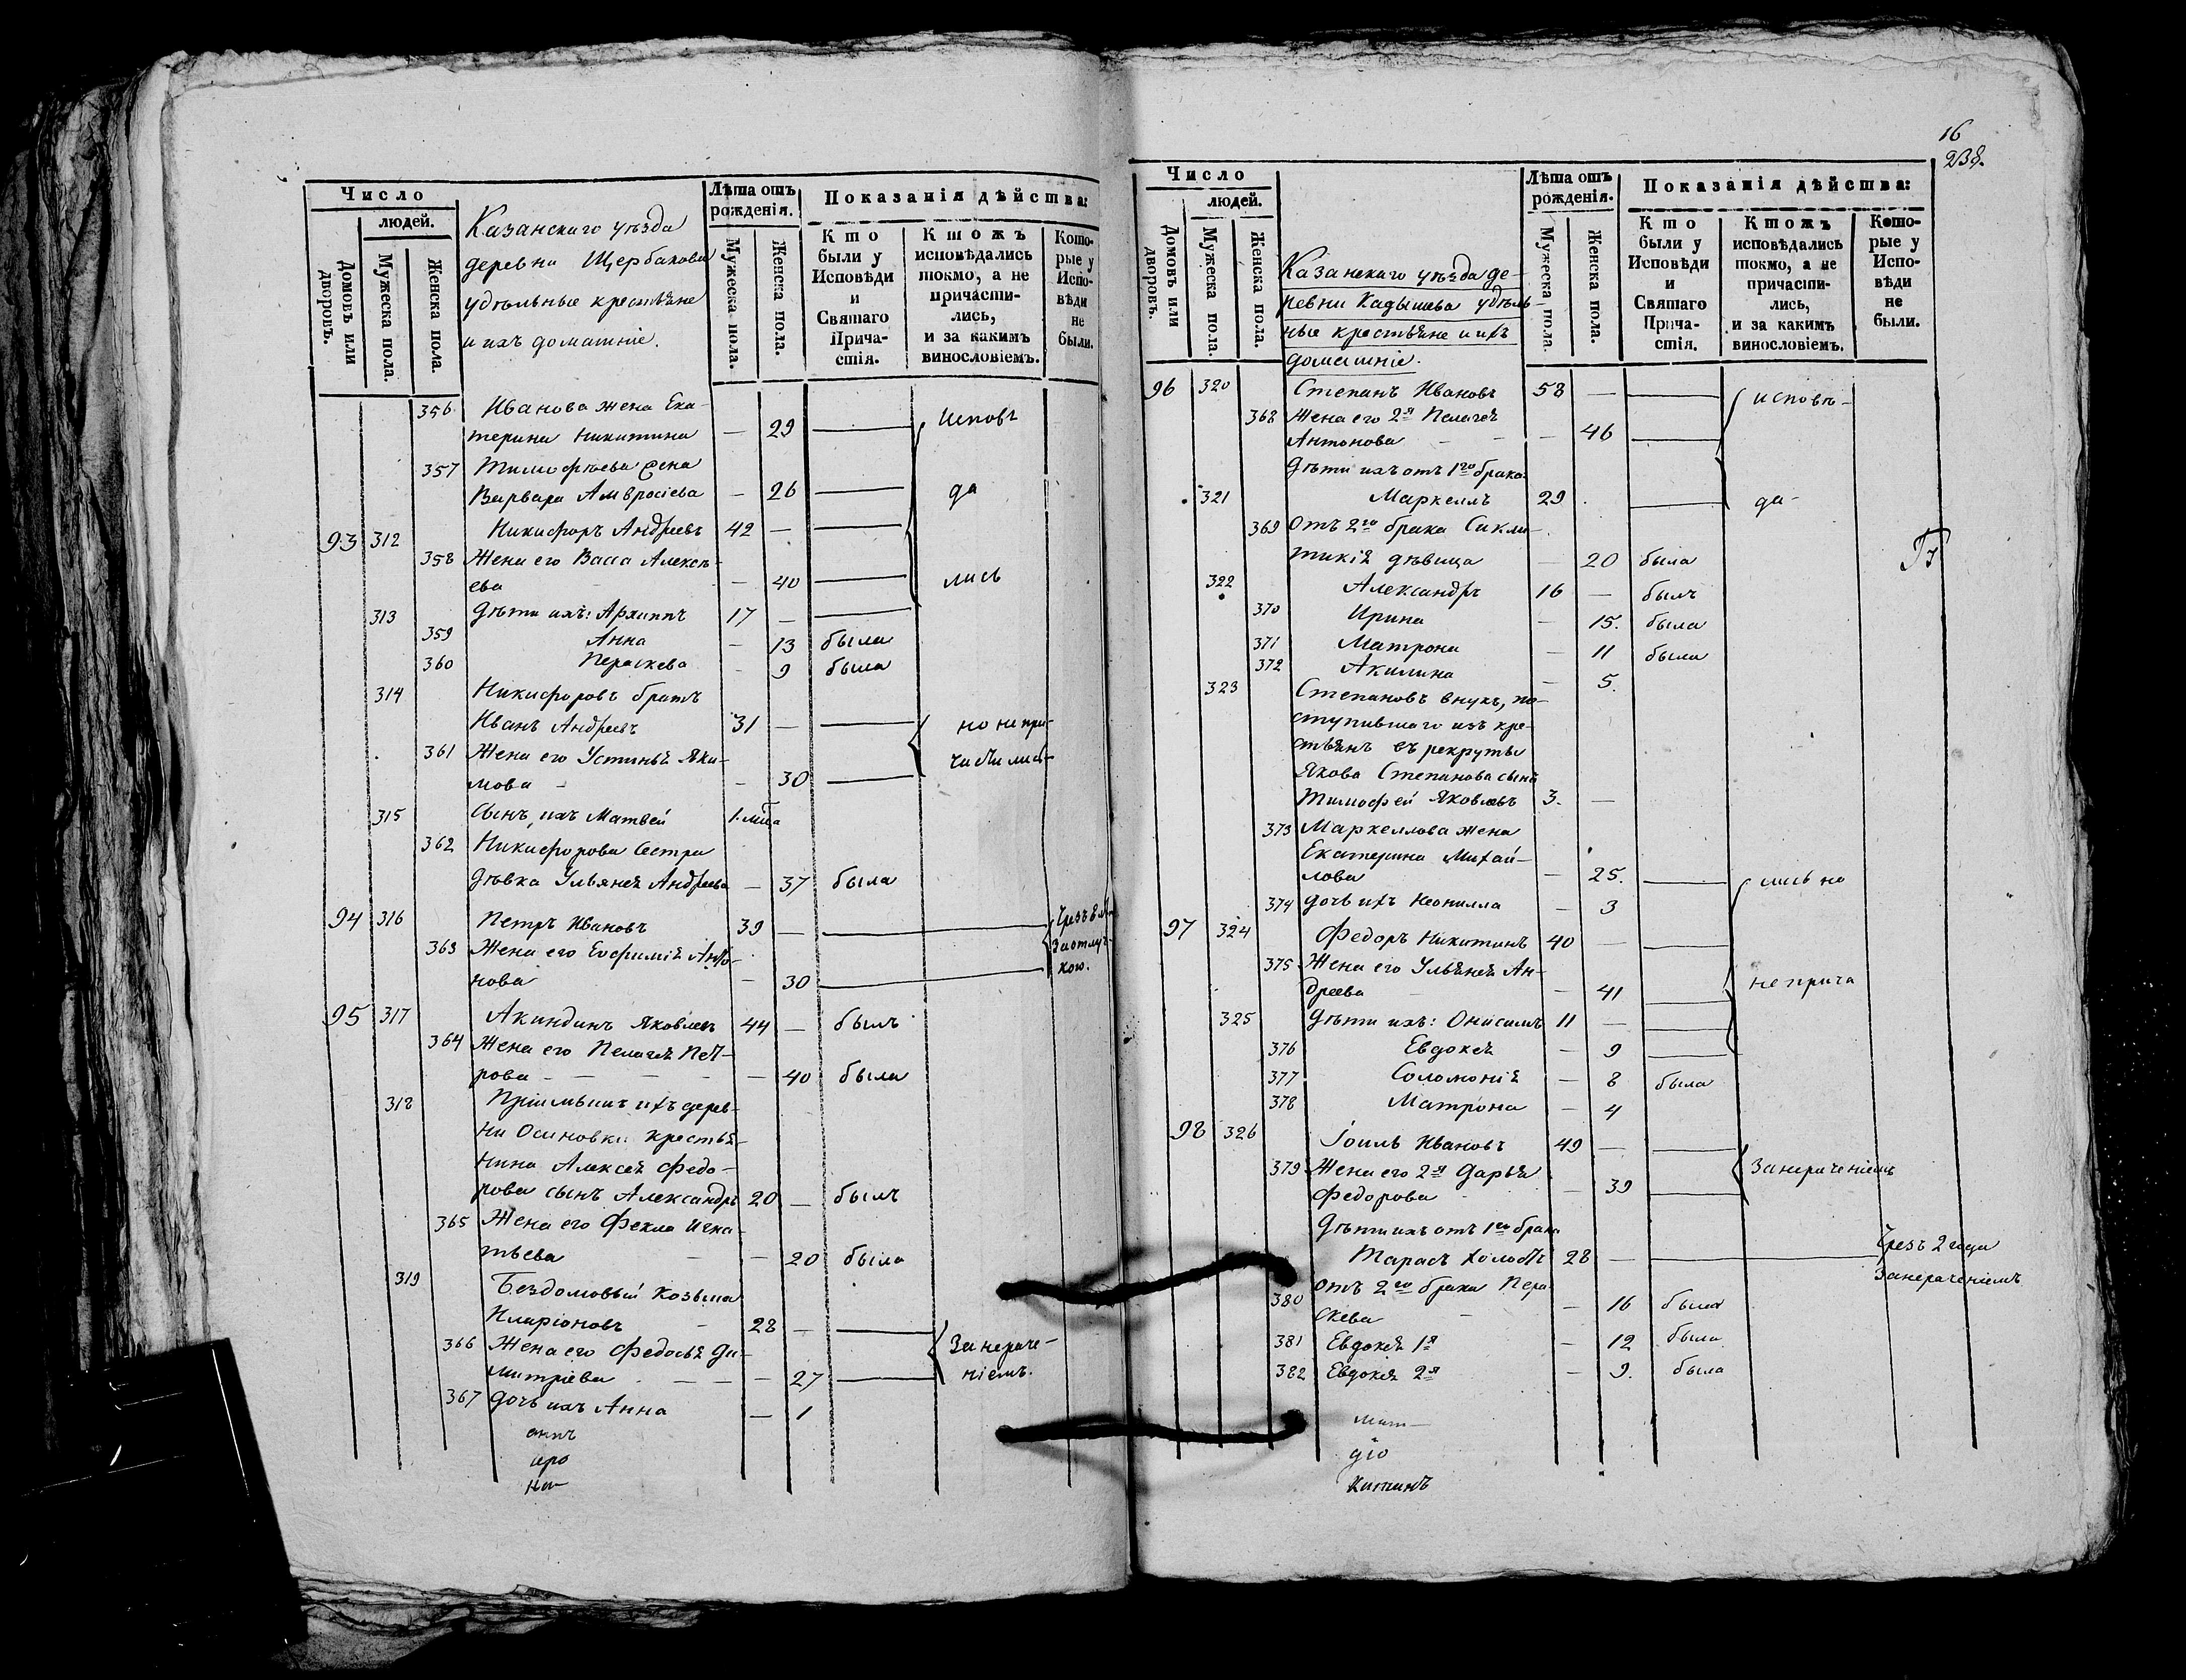 Число
людей.
Домовъ или дворовъ.
Мужеска пола.
Женска пола.
Казанскаго уѣзда
деревни Щербакова
удѣльные крестьяне
и ихъ домашніе.
Лѣта отъ рожденія.
Мужеска пола.
Женска пола.
Показанія дѣйства:
Кто были у Исповѣди и Святаго Прича-стія.
Ктожъ исповѣдались токмо, а не причасти-лись, и за какимъ винословіемъ.
Кото-рые у Испо-вѣди не были.
356 Иванова жена Ека-
терина Никитина — 29 — Исповѣ
357 Тимофѣева жена
Варвара Амвросіева — 26 — да
93 312 Никифоръ Андреевъ 42 —
358 Жена его Васса Алексѣ-
ева — 40 — лись
313 Дѣти ихъ: Архиппъ 17 —
359 Анна — 13 была
360 Параскева — 9 была
314 Никифоровъ братъ
Иванъ Андреевъ 31 — но не при-
361 Жена его Устинья Яки- частились
мова — 30
315 Сынъ ихъ Матвей 1. мца
362 Никифорова сестра
дѣвка Ульяна Андреева — 37 была
94 316 Петръ Ивановъ 39 —
363 Жена его Евфимія Анто- За отлуч-
нова — 30 кою.
95 317 Акиндинъ Яковлевъ 44 — былъ
364 Жена его Пелагея Пет-
рова — 40 была
318 Пріимышъ ихъ дерев-
ни Осиновки крестья-
нина Алексея Федо-
рова сынъ Александръ 20 — былъ
365 Жена его Фекла Игна-
тьева — 20 была
319 Бездомовый Козьма
Иларіоновъ 28 — За нераче-
366 Жена его Федосья Ди-
митріева — 27 ніемъ.
367 Дочь ихъ Анна — 1
анпъ
иро
16
238.
Число
людей.
Домовъ или дворовъ.
Мужеска пола.
Женска пола.
Казанскаго уѣзда де-
ревни Кадышева удѣль-
ные крестьяне и ихъ
домашніе.
Лѣта отъ рожденія.
Мужеска пола.
Женска пола.
Показанія дѣйства:
Кто были у Исповѣди и Святаго Прича-стія.
Ктожъ исповѣдались токмо, а не причасти-лись, и за какимъ винословіемъ.
Кото-рые у Испо-вѣди не были.
96 320 Степанъ Ивановъ 58 — исповѣ-
368 Жена его 2я Пелагея
Антонова — 46
Дѣти ихъ отъ 1го брака
321 Маркеллъ 29 да-
369 Отъ 2го брака Сикли-
тикія дѣвица — 20 была
322 Александръ 16 — былъ
370 Ирина — 15. была
371 Матрона — 11 была
372 Акилина — 5.
323 Степановъ внукъ, по-
ступившаго изъ кре-
стьянъ въ рекруты
Якова Степанова сынъ
Тимофей Яковлевъ 3. —
373 Маркеллова жена
Екатерина Михай-
лова — 25. лись но
374 Дочь ихъ Неонилла — 3
97 324 Федоръ Никитинъ 40 —
375 Жена его Ульяна Ан- не прича
дреева — 41
325 Дѣти ихъ: Онисимъ 11 —
376 Евдокея — 9
377 Соломонія — 8 была
378 Матрона — 4
98 326 Іоиль Ивановъ 49 —
379 Жена его 2я Дарья За нераченіемъ
Федорова — 39
Дѣти ихъ отъ 1го брака
Тарасъ холостъ 28 — Чрезъ 2 года
За нераченіемъ
380 Отъ 2го брака Пара-
скева — 16 была
381 Евдокея 1я — 12 была
382 Евдокея 2я — 9. была
мит-
діо
Китинъ